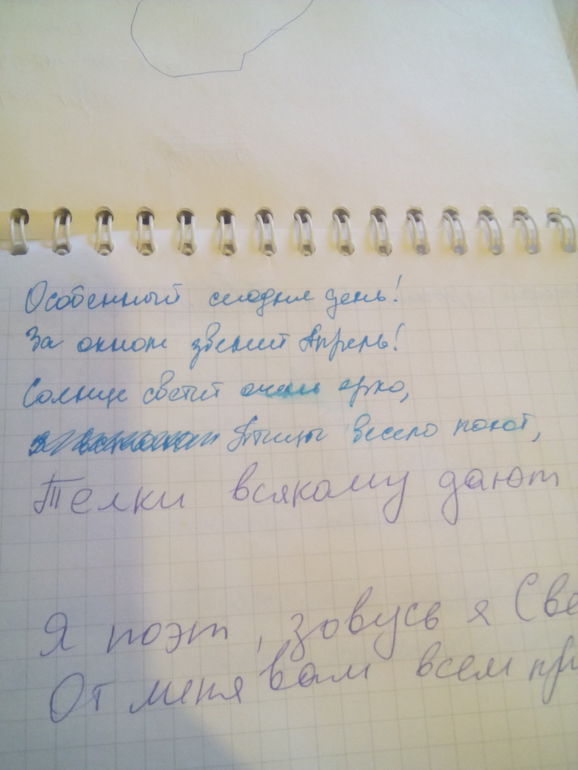 Особенный сегодня день!
За окном звенит Апрель!
Солнце светит очень ярко,
Птицы весело поют,
Телки всякому дают
Я поэт, зовусь я Све
От меня вам всем при